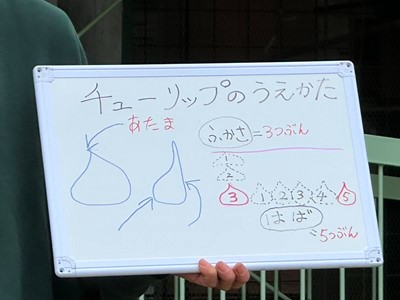 チューリップのうえかた
あたま
ふかさ=3つぶん
1
2
3 1 2 3 4 5
はば
=5つぶん